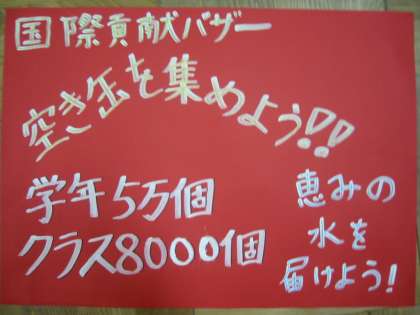 国際貢献バザー
空き缶を集めよう!!
学年5万個
クラス8000個
恵みの
水を
届けよう!